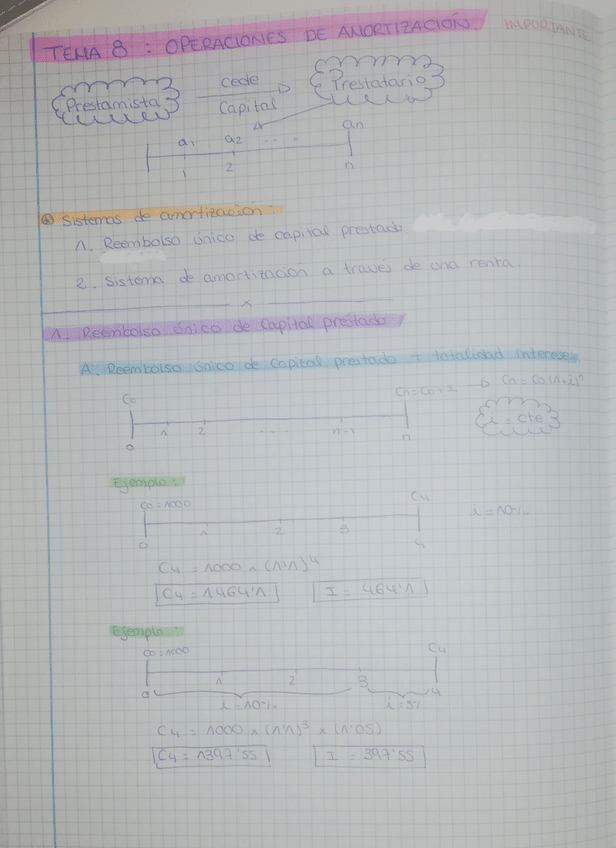 TEMA 8 : OPERACIONES DE AMORTIZACIÓN. IMPORTANTE
Prestamista cede Capital Prestatario
a1 a2 ... an
1 2 n
Sistemas de amortización:
1. Reembolso único de capital prestado
2. Sistema de amortización a través de una renta.
x
1. Reembolso único de capital prestado
A. Reembolso único de capital prestado + totalidad intereses
C0 Cn = C0 + I → Cn = C0(1+i)^n
0 1 2 ... n-1 n
i = cte
Ejemplo:
C0 = 1000 C4 i = 10%
0 1 2 3 4
C4 = 1000 x (1'1)^4
C4 = 1464'1 I = 464'1
Ejemplo:
C0 = 1000 C4
0 1 2 3 4
i = 10% i = 5%
C4 = 1000 x (1'1)^3 x (1'05)
C4 = 1397'55 I = 397'55